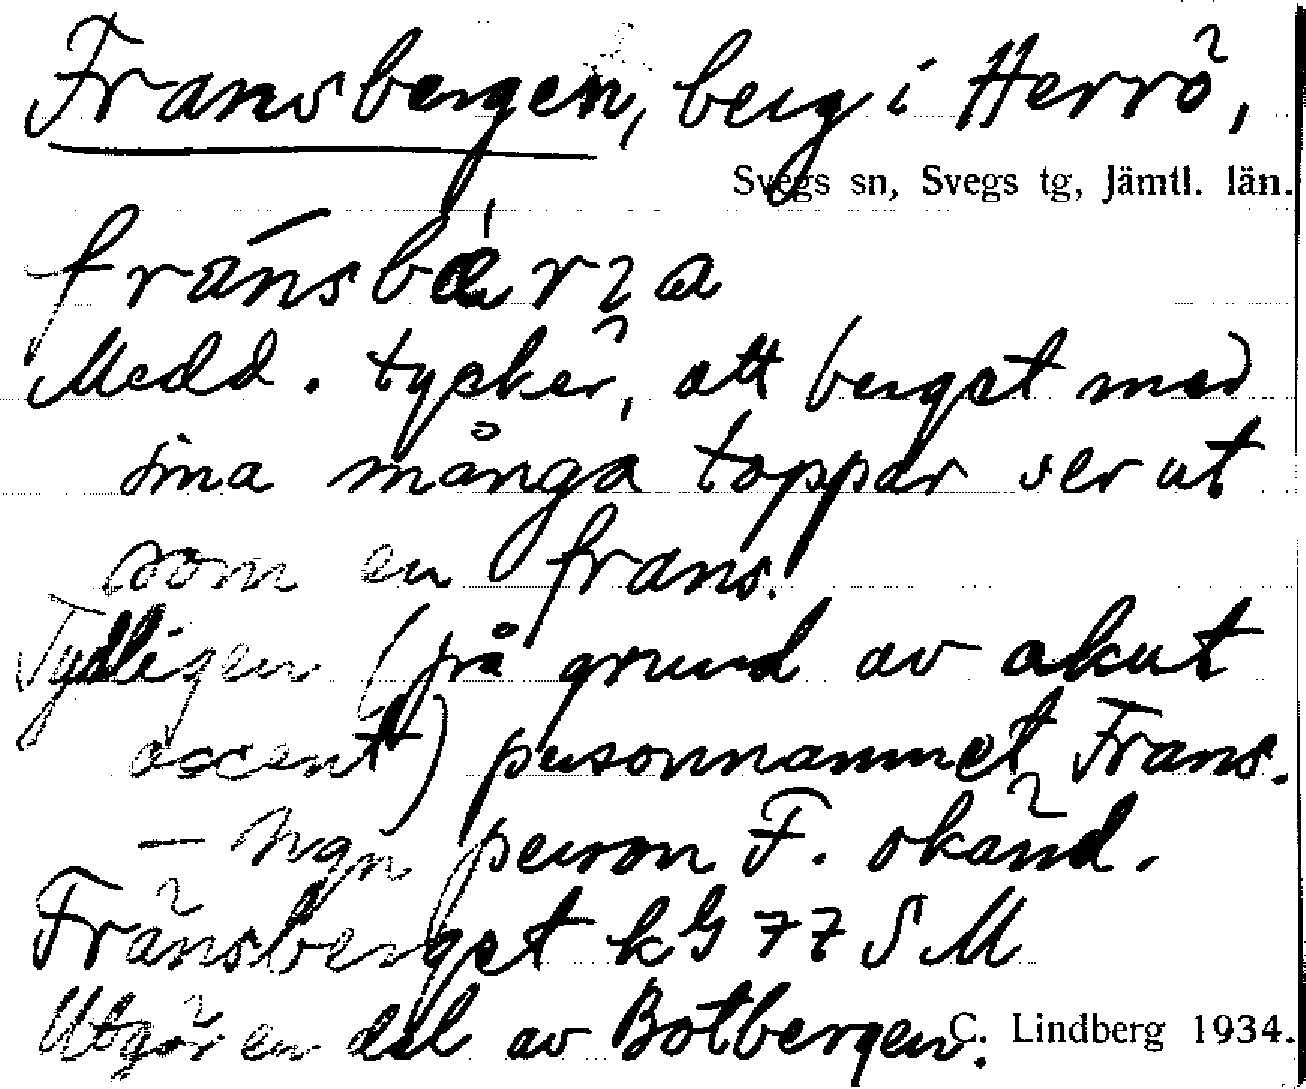 Fransbergen, berg i Herrö,
Svegs sn, Svegs tg, Jämtl. län.
Medd. tycker, att berget med
sina många toppar ser ut
som en frans.
Tydligen (på grund av akut
accent) personnamnet Frans.
– Ngn person F. okänd.
Fränsberget kG 77 SM
Utgör en del av Botbergen.
C. Lindberg 1934.